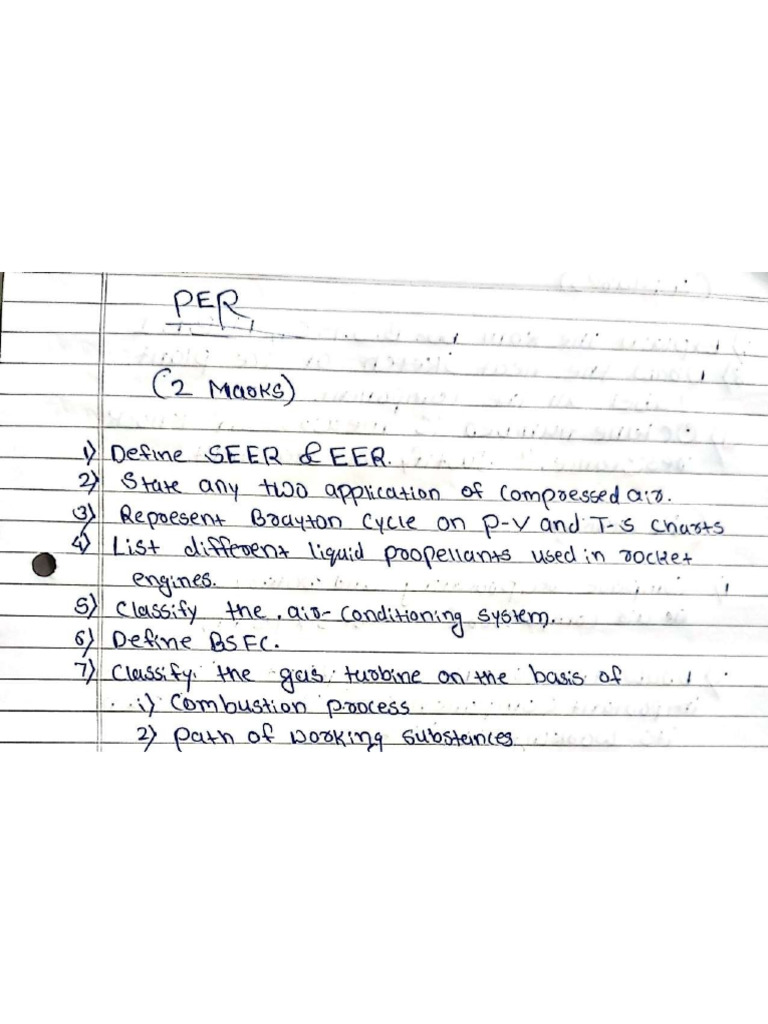 PER
(2 Marks)
1) Define SEER & EER.
2) State any two application of compressed air.
3) Represent Brayton Cycle on P-V and T-S charts
4) List different liquid propellants used in rocket
engines.
5) Classify the air-conditioning system.
6) Define BSFC.
7) Classify the gas turbine on the basis of
i) Combustion process
2) path of working substances